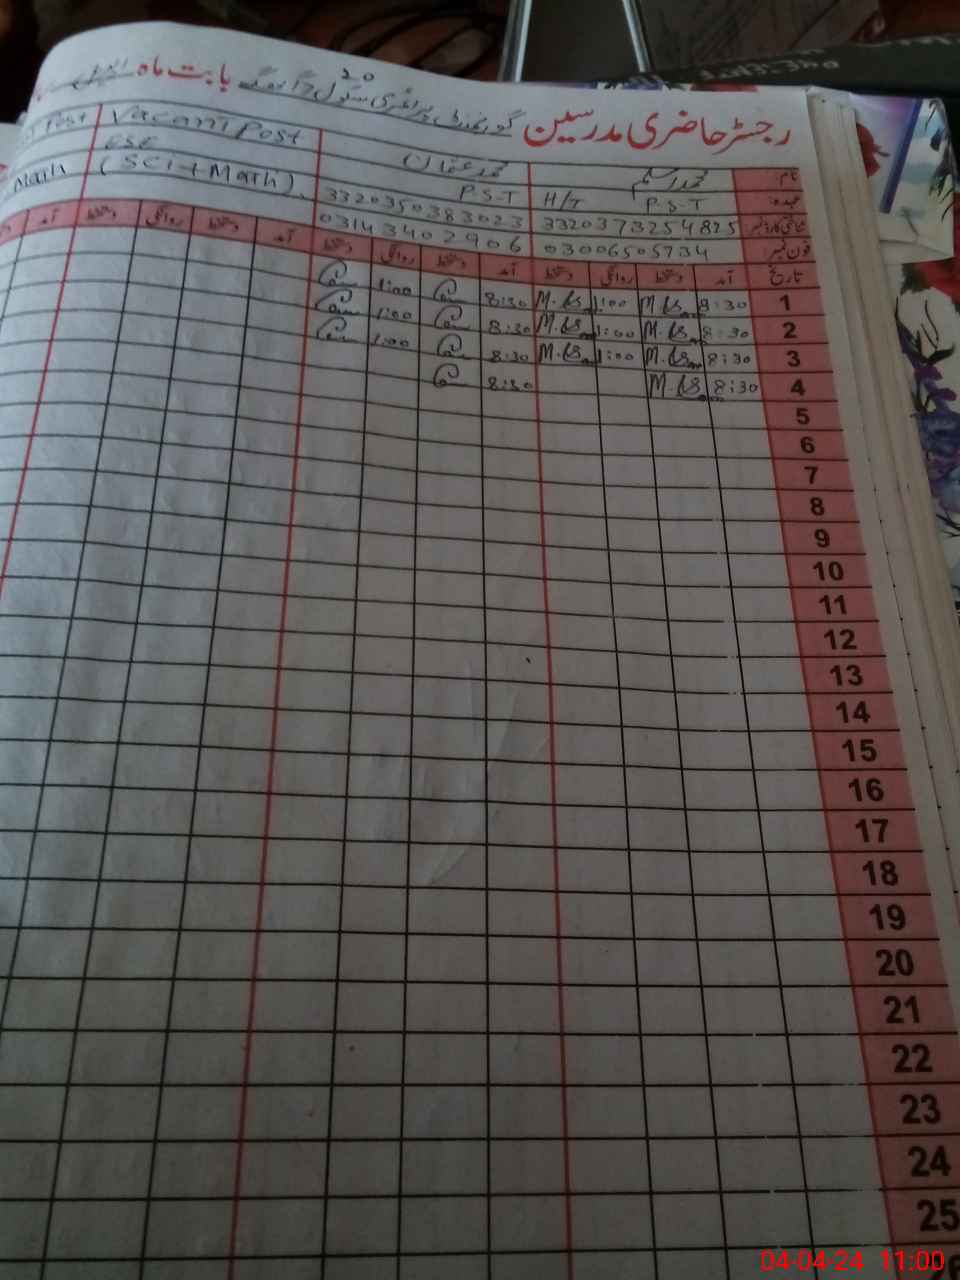 رجسٹر حاضری مدرسین گورنمنٹ پرائمری سکول بابت ماہ 20
نام محمد اسلم محمد عثمان Vacant Post Post
عہدہ: P.S.T H/T P.S.T ESE
شناختی کارڈ نمبر 3320373254825 3320350383023 (SCi + Math) Math
فون نمبر 03006505734 03143402906
تاریخ آمد دستخط روانگی دستخط آمد دستخط روانگی دستخط آمد دستخط روانگی دستخط آمد
1 8:30 1:00 8:30 1:00
2 8:30 1:00 8:30 1:00
3 8:30 1:00 8:30 1:00
4 8:30 8:30
5
6
7
8
9
10
11
12
13
14
15
16
17
18
19
20
21
22
23
24
25
04-04-24 11:00